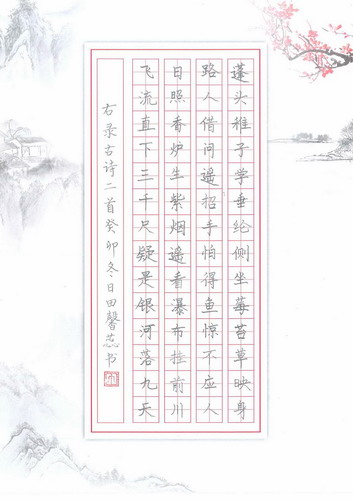 蓬头稚子学垂纶侧坐莓苔草映身
路人借问遥招手怕得鱼惊不应人
日照香炉生紫烟遥看瀑布挂前川
飞流直下三千尺疑是银河落九天
右录古诗二首癸卯冬日田馨蕊书